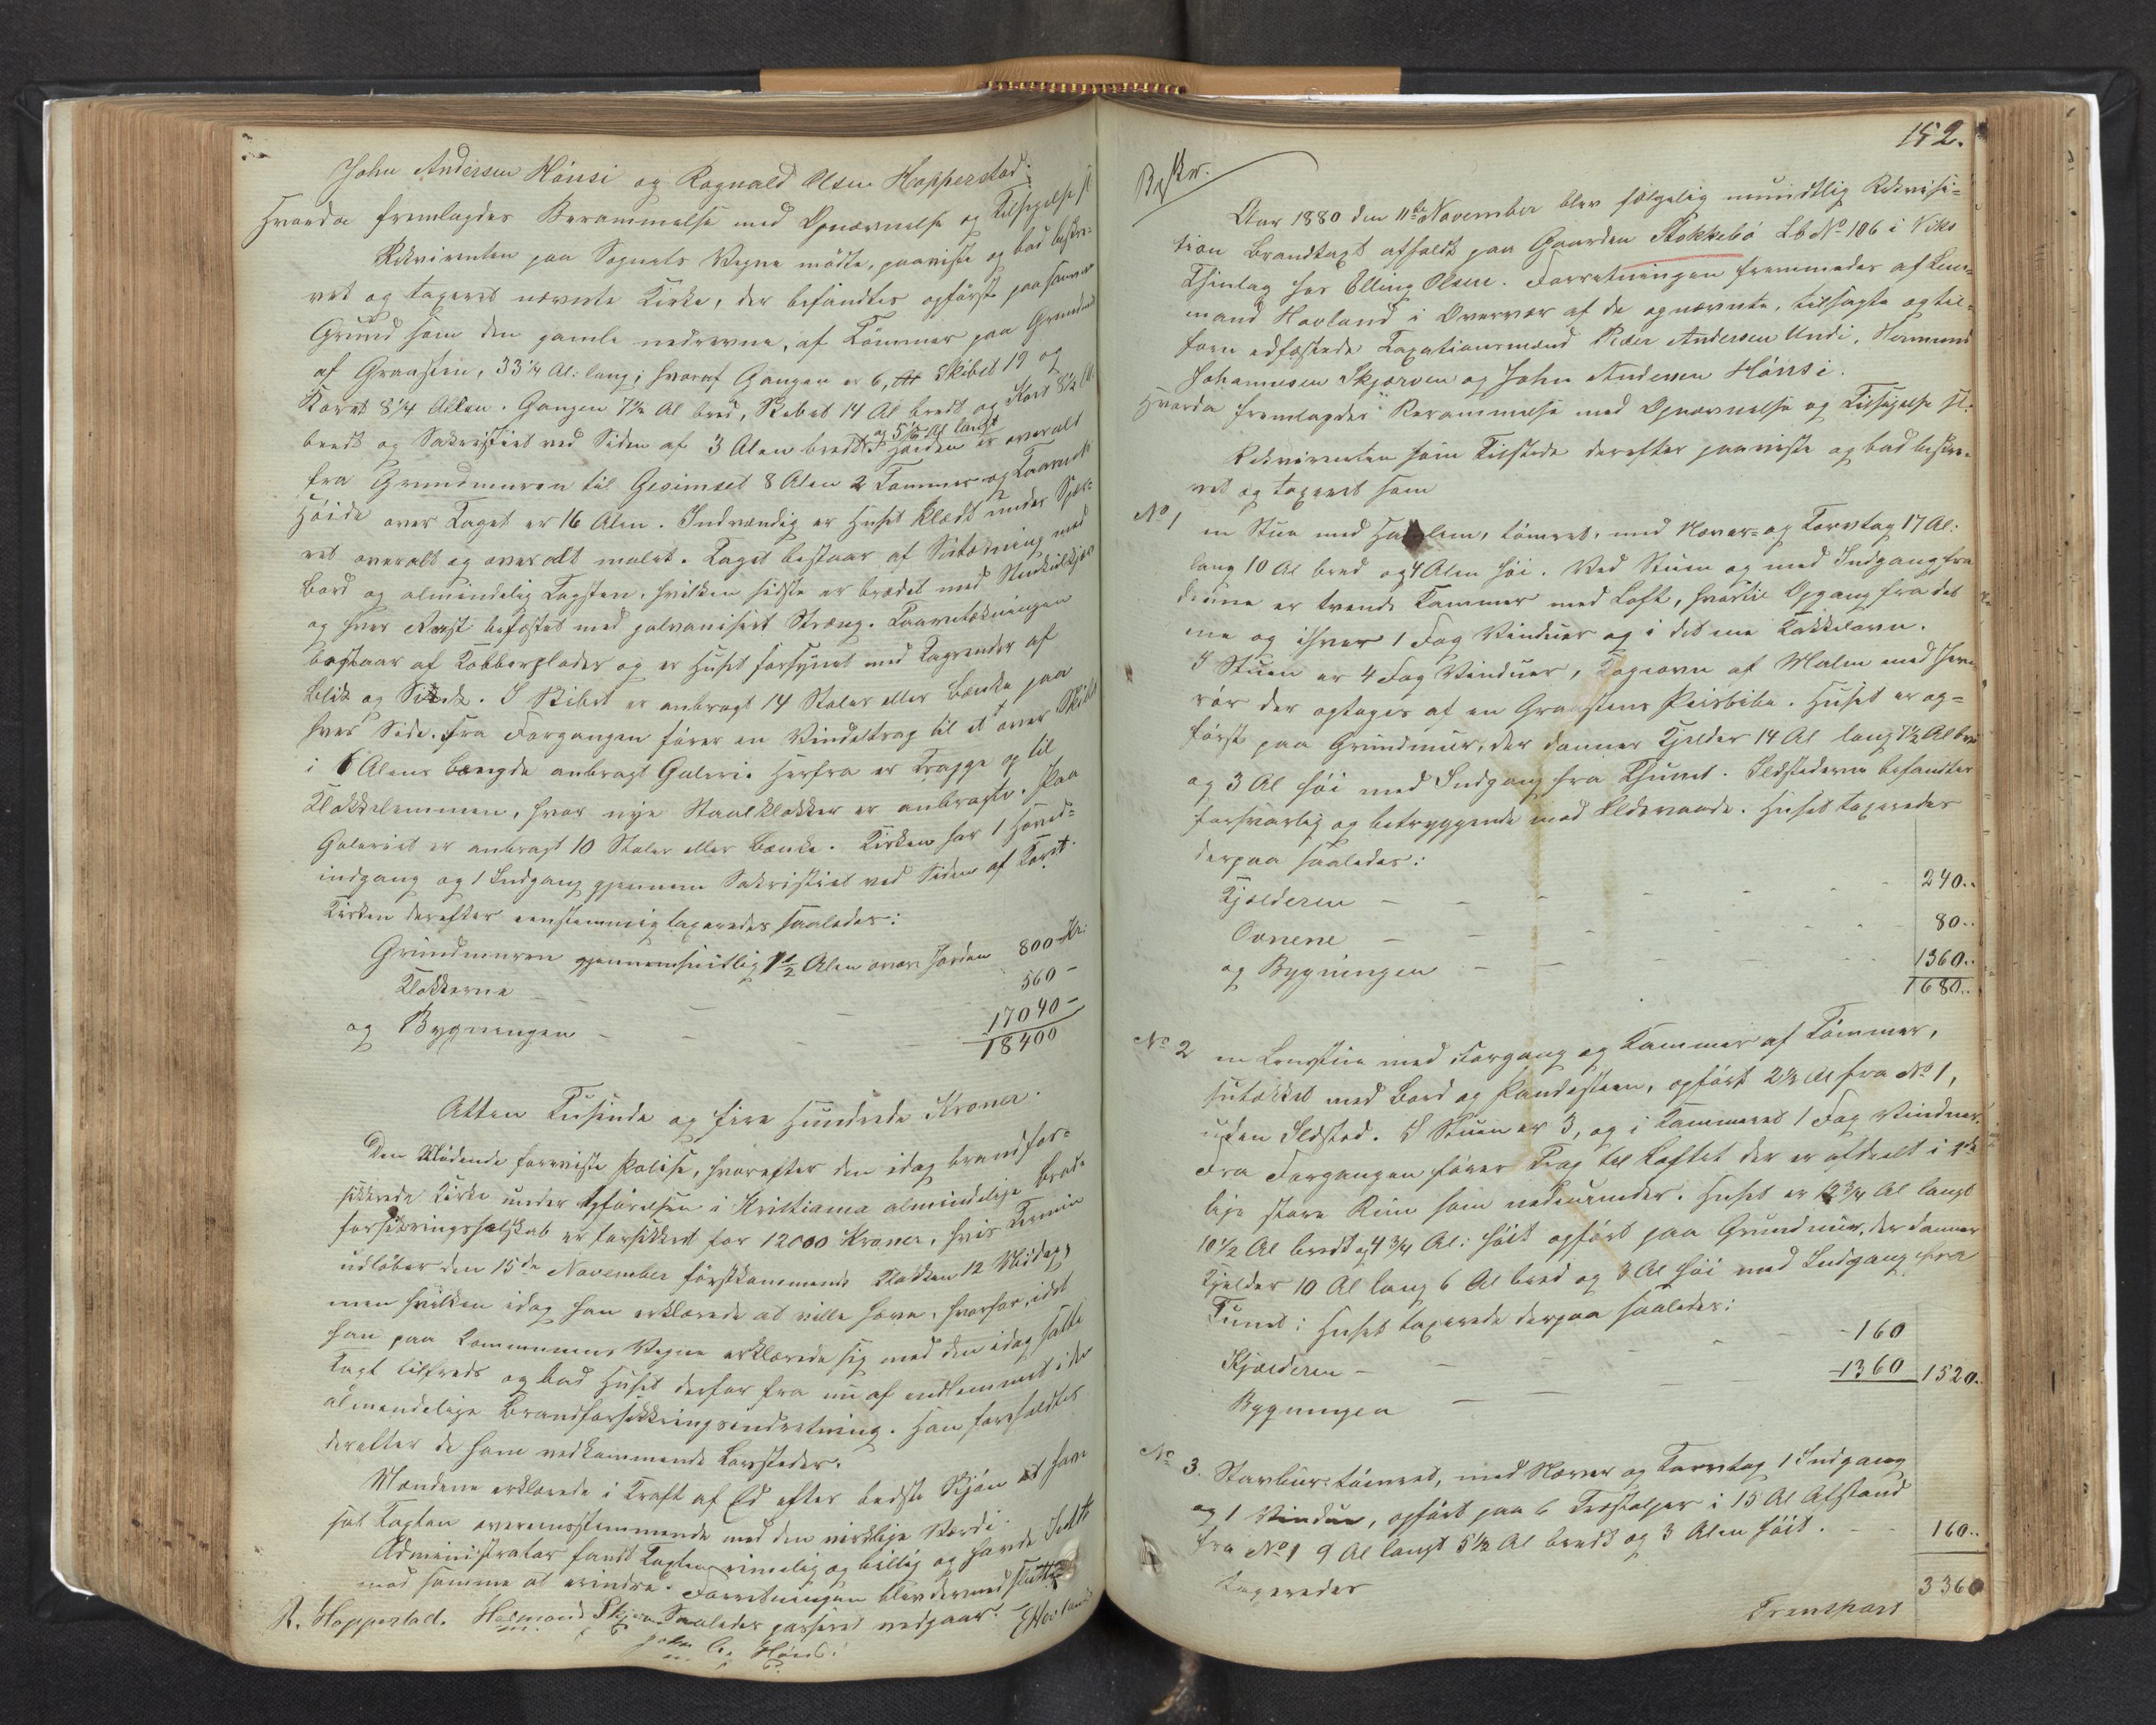 John Andersen Hönsi og Rognald Olsen Hopperstad.
Hvorda fremlagdes Berammelse med Opnævnelse og Tilsigelse sl.
Rekvirenten paa Sognets Vegne mödte, paaviste og bad beskre-
vet og taxeret nævnte Kirke, der befandtes opfört paa samme
Grund som den gamle nedrevne, af Tömmer paa Grundmur
af Graasten, 33¼ Al: lang; hvoraf Gangen er 6, Skibet 19 og
Koret 8¼ Allen. Gangen 7½ Al bred, Skibet 14 Al bredt og Koret 8½ Al.
bredt og Sakristiet ved Siden af 3 Alen bredt og 5½ Al langt. Höiden er overalt
fra Grundmuren til Gesimset 8 Alen 2 Tommer og Taarnets
Höide over Taget er 16 Alen. Indvændig er Huset klædt under Spær-
ret overalt og overalt malet. Taget bestaar af Sutækning med
Bord og almindelig Tagsten, hvilken sidste er brædet med
og hver befæstet med galvaniseret Streng. Taarntækningen
bestaar af Kobberplader og er Huset forsynet med Tagrender af
Blik og Sink. I Skibet er anbragt 14 Stoler eller Bænke paa
hver Side. Fra Forgangen förer en Vindeltrap til et over Skibet
i 6 Alens Længde anbragt Galleri. Herfra er Trappe op til
Klokkelemmen, hvor nye Staalklokker er anbragte. Paa
Galeriet er anbragt 10 Stoler eller Bænke. Kirken har 1 Hoved-
indgang og 1 Indgang gjennem Sakristiet ved Siden af Koret.
Kirken derefter enstemmig taxeredes saaledes:
Grundmuren gjennemsnitlig 1½ Alen over Jorden 800 Kr:
Klokkerne - 560 -
og Bygningen - - - - 17040 -
18400
Atten Tusinde og fire Hundrede Kroner.
Den Mödende foreviste Polise, hvorefter den idag brandfor-
sikrede Kirke under Opförelsen i Kristiania almindelige Brand-
forsikringsselskab er forsikkret for 12000 Kroner, hvis Termin
udlöber den 15de November förstkommende Klokken 12 Middag,
men hvilken idag han erklærede at ville hæve, hvorfor, idet
han paa Kommunens Vegne erklærede sig med den idag satte
Taxt tilfreds og bad Huset derfor fra nu af indlemmet i den
almindelige Brandforsikkringsindretning. Han foreholdtes
derefter de ham vedkommende Lovsteder.
Mændene erklærede i Kraft af Ed efter bedste Skjön at have
sat Taxten overensstemmende med den virkelige Værdi.
Administrator fandt Taxten rimelig og billig og havde Intet
mod samme at erindre. Forretningen blev dermed sluttet
R. Hopperstad. Hermond Skjer Saaledes passeret vedgaar. E Hovland
John A. Hönsi
m. f. P.
152.
Aar 1880 den 11te November blev fölgelig mundtlig Rekvisi-
tion Brandtaxt afholdt paa Gaarden Stokkebö Lb No 106 i Viks
Thinlag hos Elling Olsen. Forretningen fremmedes af Lens-
mand Hovland i Overvær af de opnævnte, tilsagte og til-
forn edfæstede Taxationsmænd Peder Andersen Undi, Hermund
Johannesen Skjærven og John Andersen Hönsi.
Hvorda fremlagdes Berammelse med Opnævnelse og Tilsigelse sl.
Rekvirenten som Tilstede derefter paaviste og bad beskre-
vet og taxeret som
No 1 en Stue med, tömret, med Næver- og Torvtag 17 Al:
lang 10 Al bred og 4 Alen höi. Ved Stuen og med Indgang fra
denne er tvende Kammer med Loft, hvortil Opgang fra det
ene og ihver 1 Fag Vinduer og i det ene Kakkelovn.
I Stuen er 4 Fag Vinduer, Kogeovn af Malm med Jern
rör der optages af en Graastens Peisbibe. Huset er op-
fört paa Grundmur, der danner Kjelder 14 Al lang 7½ Al bred
og 3 Al höi med Indgang fra Thunet. Ildstederne befandtes
forsvarlig og betryggende mod Ildsvaade. Huset taxeredes
derpaa saaledes:
Kjelderen - - - - - - 240..
Ovnene - - - - - - 80..
og Bygningen - - - - - 1360..
1680..
No 2 en med Forgang og Kammer af Tömmer,
sutækket med Bord og Pandesteen, opfört 2½ Al fra No 1,
uden Ildsted. I Stuen er 3, og i Kammeret 1 Fag Vinduer.
Fra Forgangen förer Trap til Loftet der er afdeelt i
lige store Rum som nedenunder. Huset er 12¾ Al langt
10½ Al bredt og 4¾ Al: höit opfört paa Grundmur, der danner
Kjelder 10 Al lang 6 Al bred og 3 Al höi med Indgang fra
Tunet: Huset taxerede derpaa saaledes:
Kjælderen - - - - - 160
Bygningen - - - - - 1360 1520..
No 3. Stavbur tömret, med Næver og Torvtag 1 Indgang
og 1 Vindue, opfört paa 6 Træstolper i 15 Al Afstand
fra No 1 9 Al langt 5½ Al bredt og 3 Alen höit.
taxeredes 160..
Transport 3360